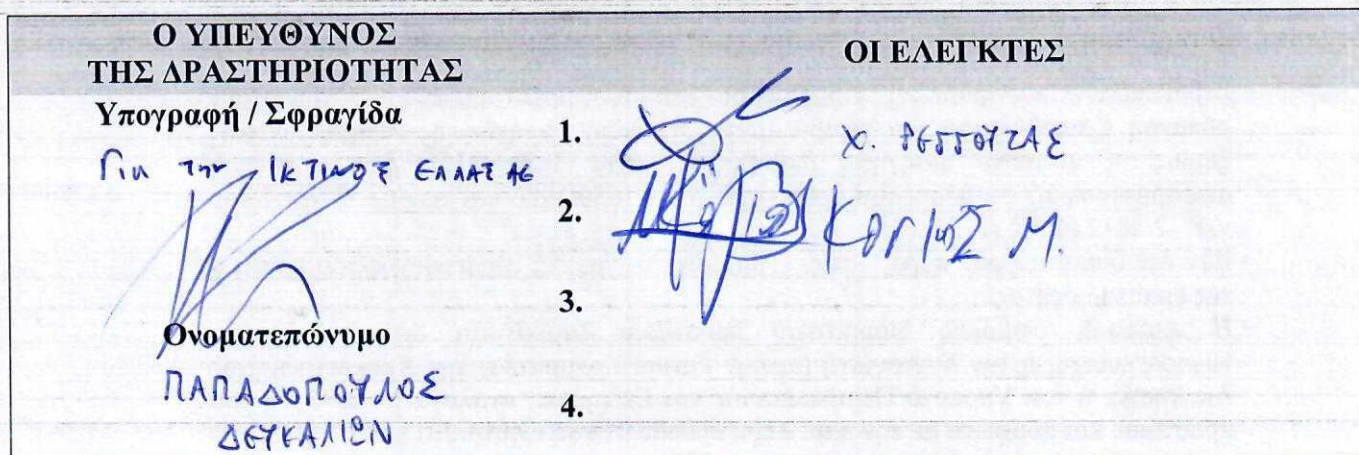 Ο ΥΠΕΥΘΥΝΟΣ
ΤΗΣ ΔΡΑΣΤΗΡΙΟΤΗΤΑΣ
Υπογραφή / Σφραγίδα
Για την ΙΚΤΙΝΟΣ ΕΛΛΑΣ ΑΕ
Ονοματεπώνυμο
ΠΑΠΑΔΟΠΟΥΛΟΣ
ΔΕΥΚΑΛΙΩΝ
ΟΙ ΕΛΕΓΚΤΕΣ
1. Χ.
2. Μ.
3.
4.